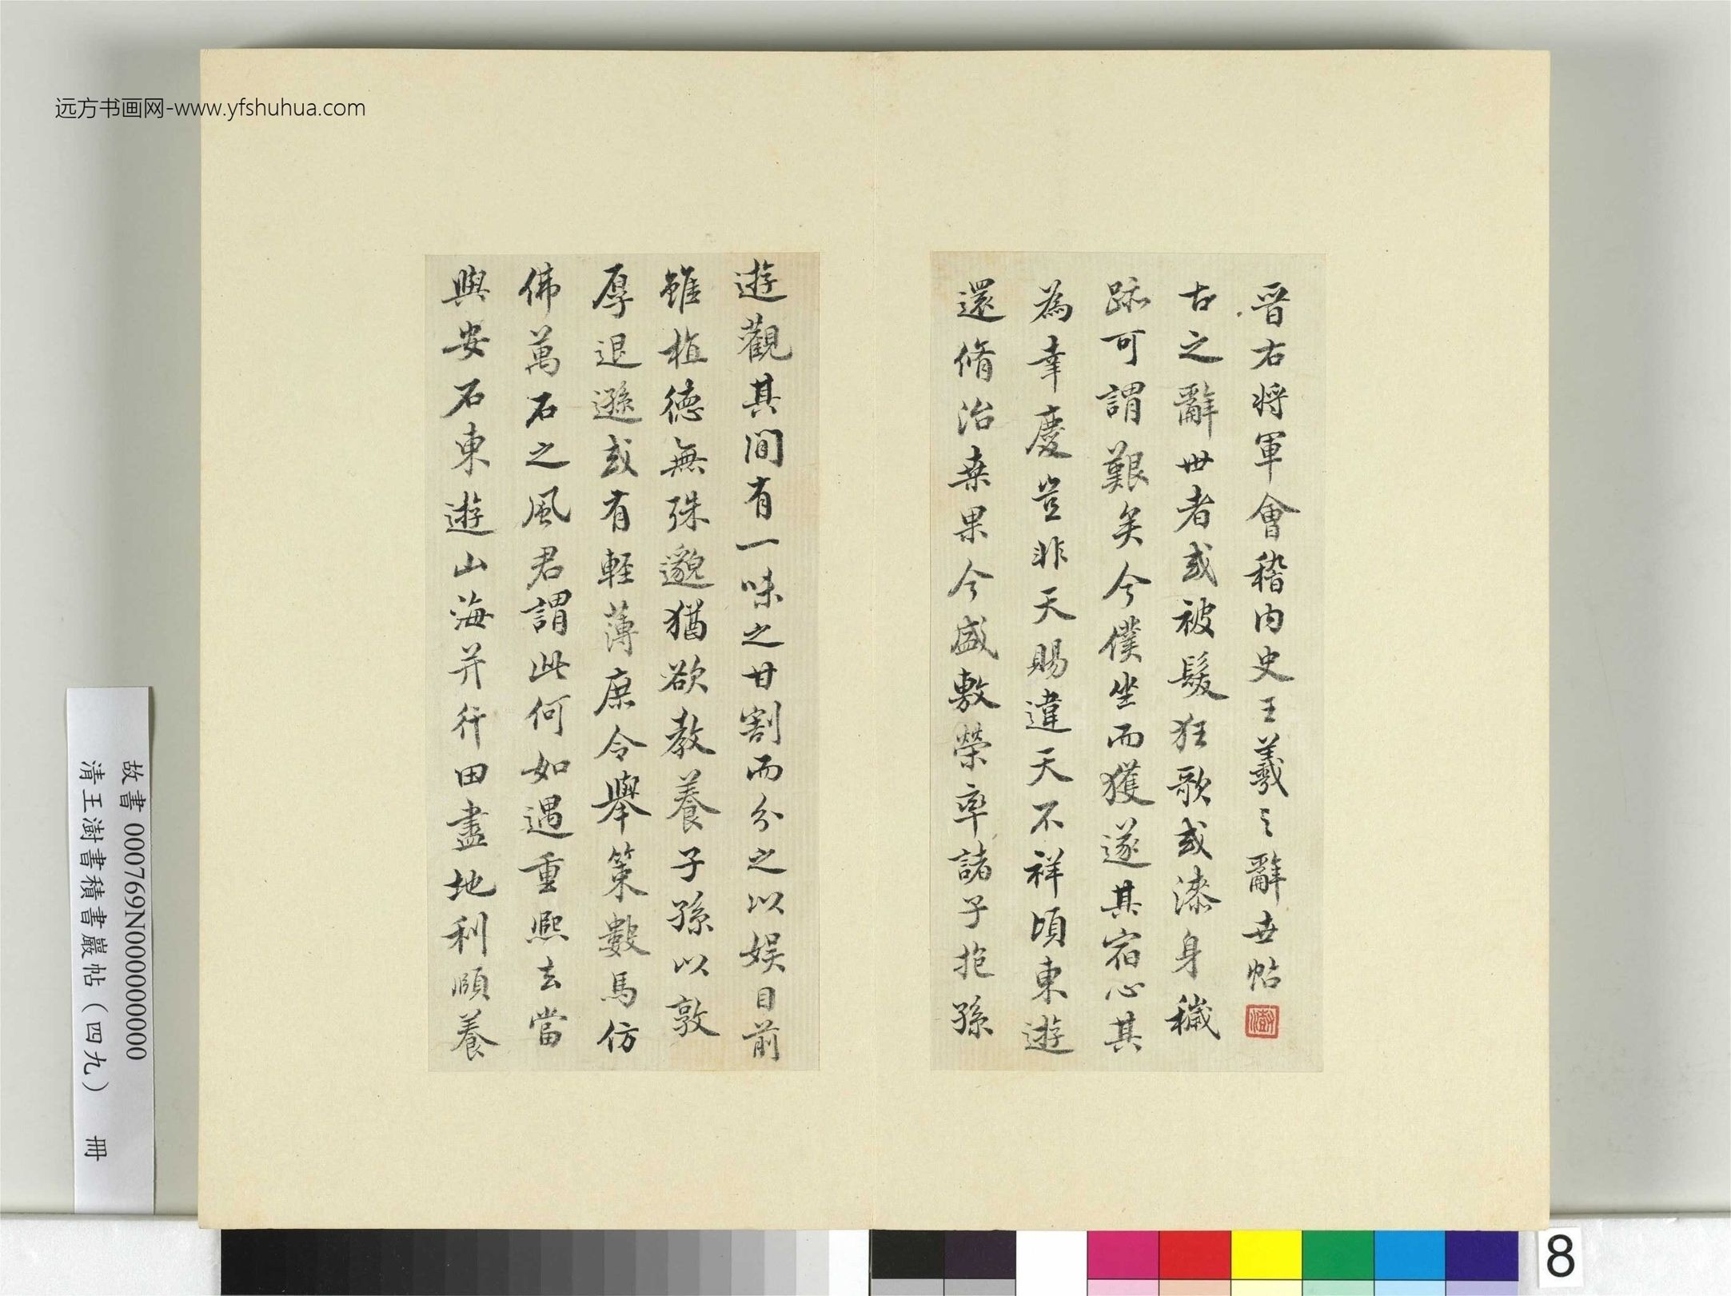 远方书画网-www.yfshuhua.com
晋右将軍會稽内史王羲之辭世帖
澍
古之辭世者或被髮狂歌或漆身穢
跡可謂艱矣今僕坐而獲遂其宿心其
為幸慶豈非天賜違天不祥頃東遊
還脩治桒果今盛敷榮率諸子抱孫
遊觀其間有一味之甘割而分之以娱目前
雖植德無殊邈猶欲教養子孫以敦
厚退遜或有輕薄庶令舉策數馬仿
佛萬石之風君謂此何如遇重熙去當
與安石東遊山海并行田盡地利頤養
故書 000769N000000000
清王澍書積書巖帖(四九) 冊
8